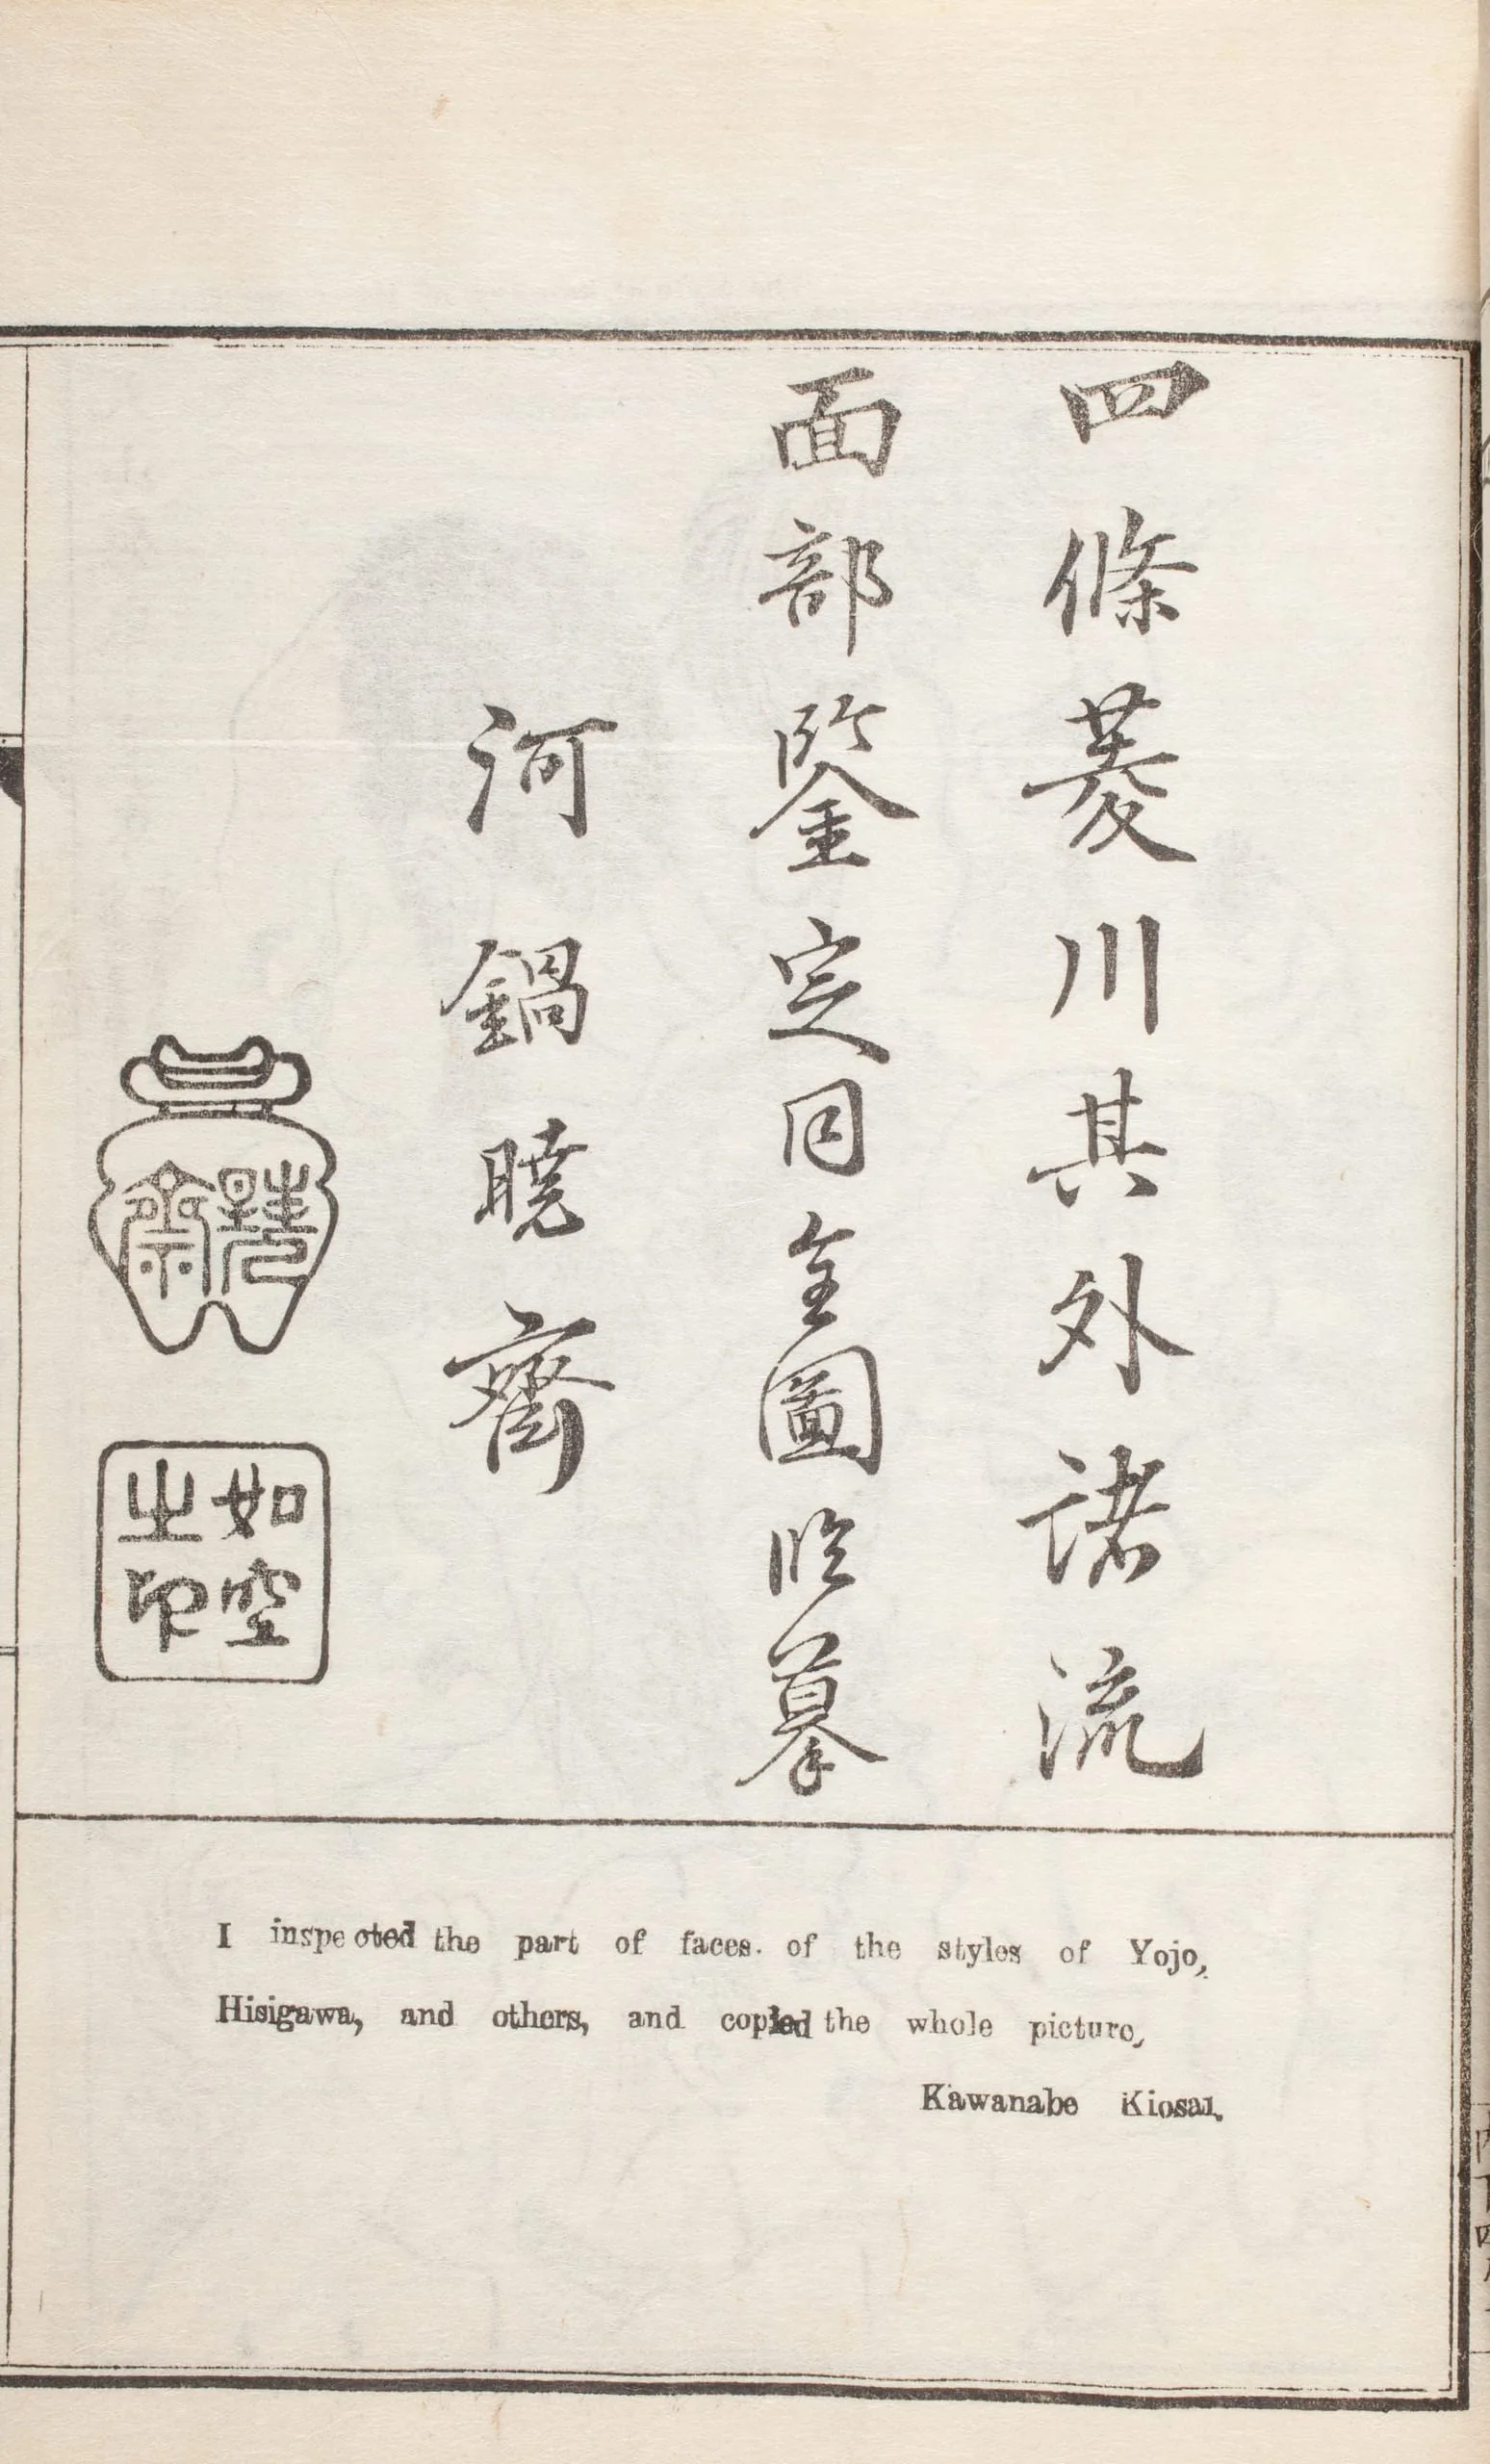 四條菱川其外諸流
面部鑒定同全圖臨摹
河鍋曉齋
曉齋
如空
之印
I inspected the part of faces. of the styles of Yojo,
Hisigawa, and others, and copied the whole picture,
Kawanabe Kiosai.